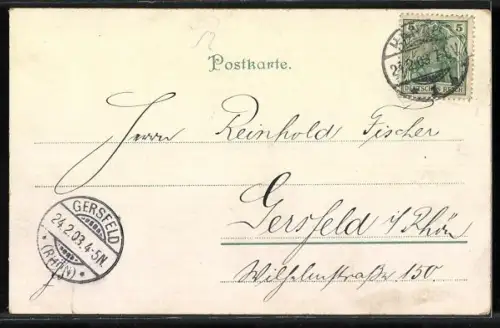 Postkarte.
5 5
24.2.03
Herrn Reinhold Fischer
Gersfeld i/Rhön
Wilhelmstraße 150.
GERSFELD
24.2.03. 4-5N.
* (RHÖN) *